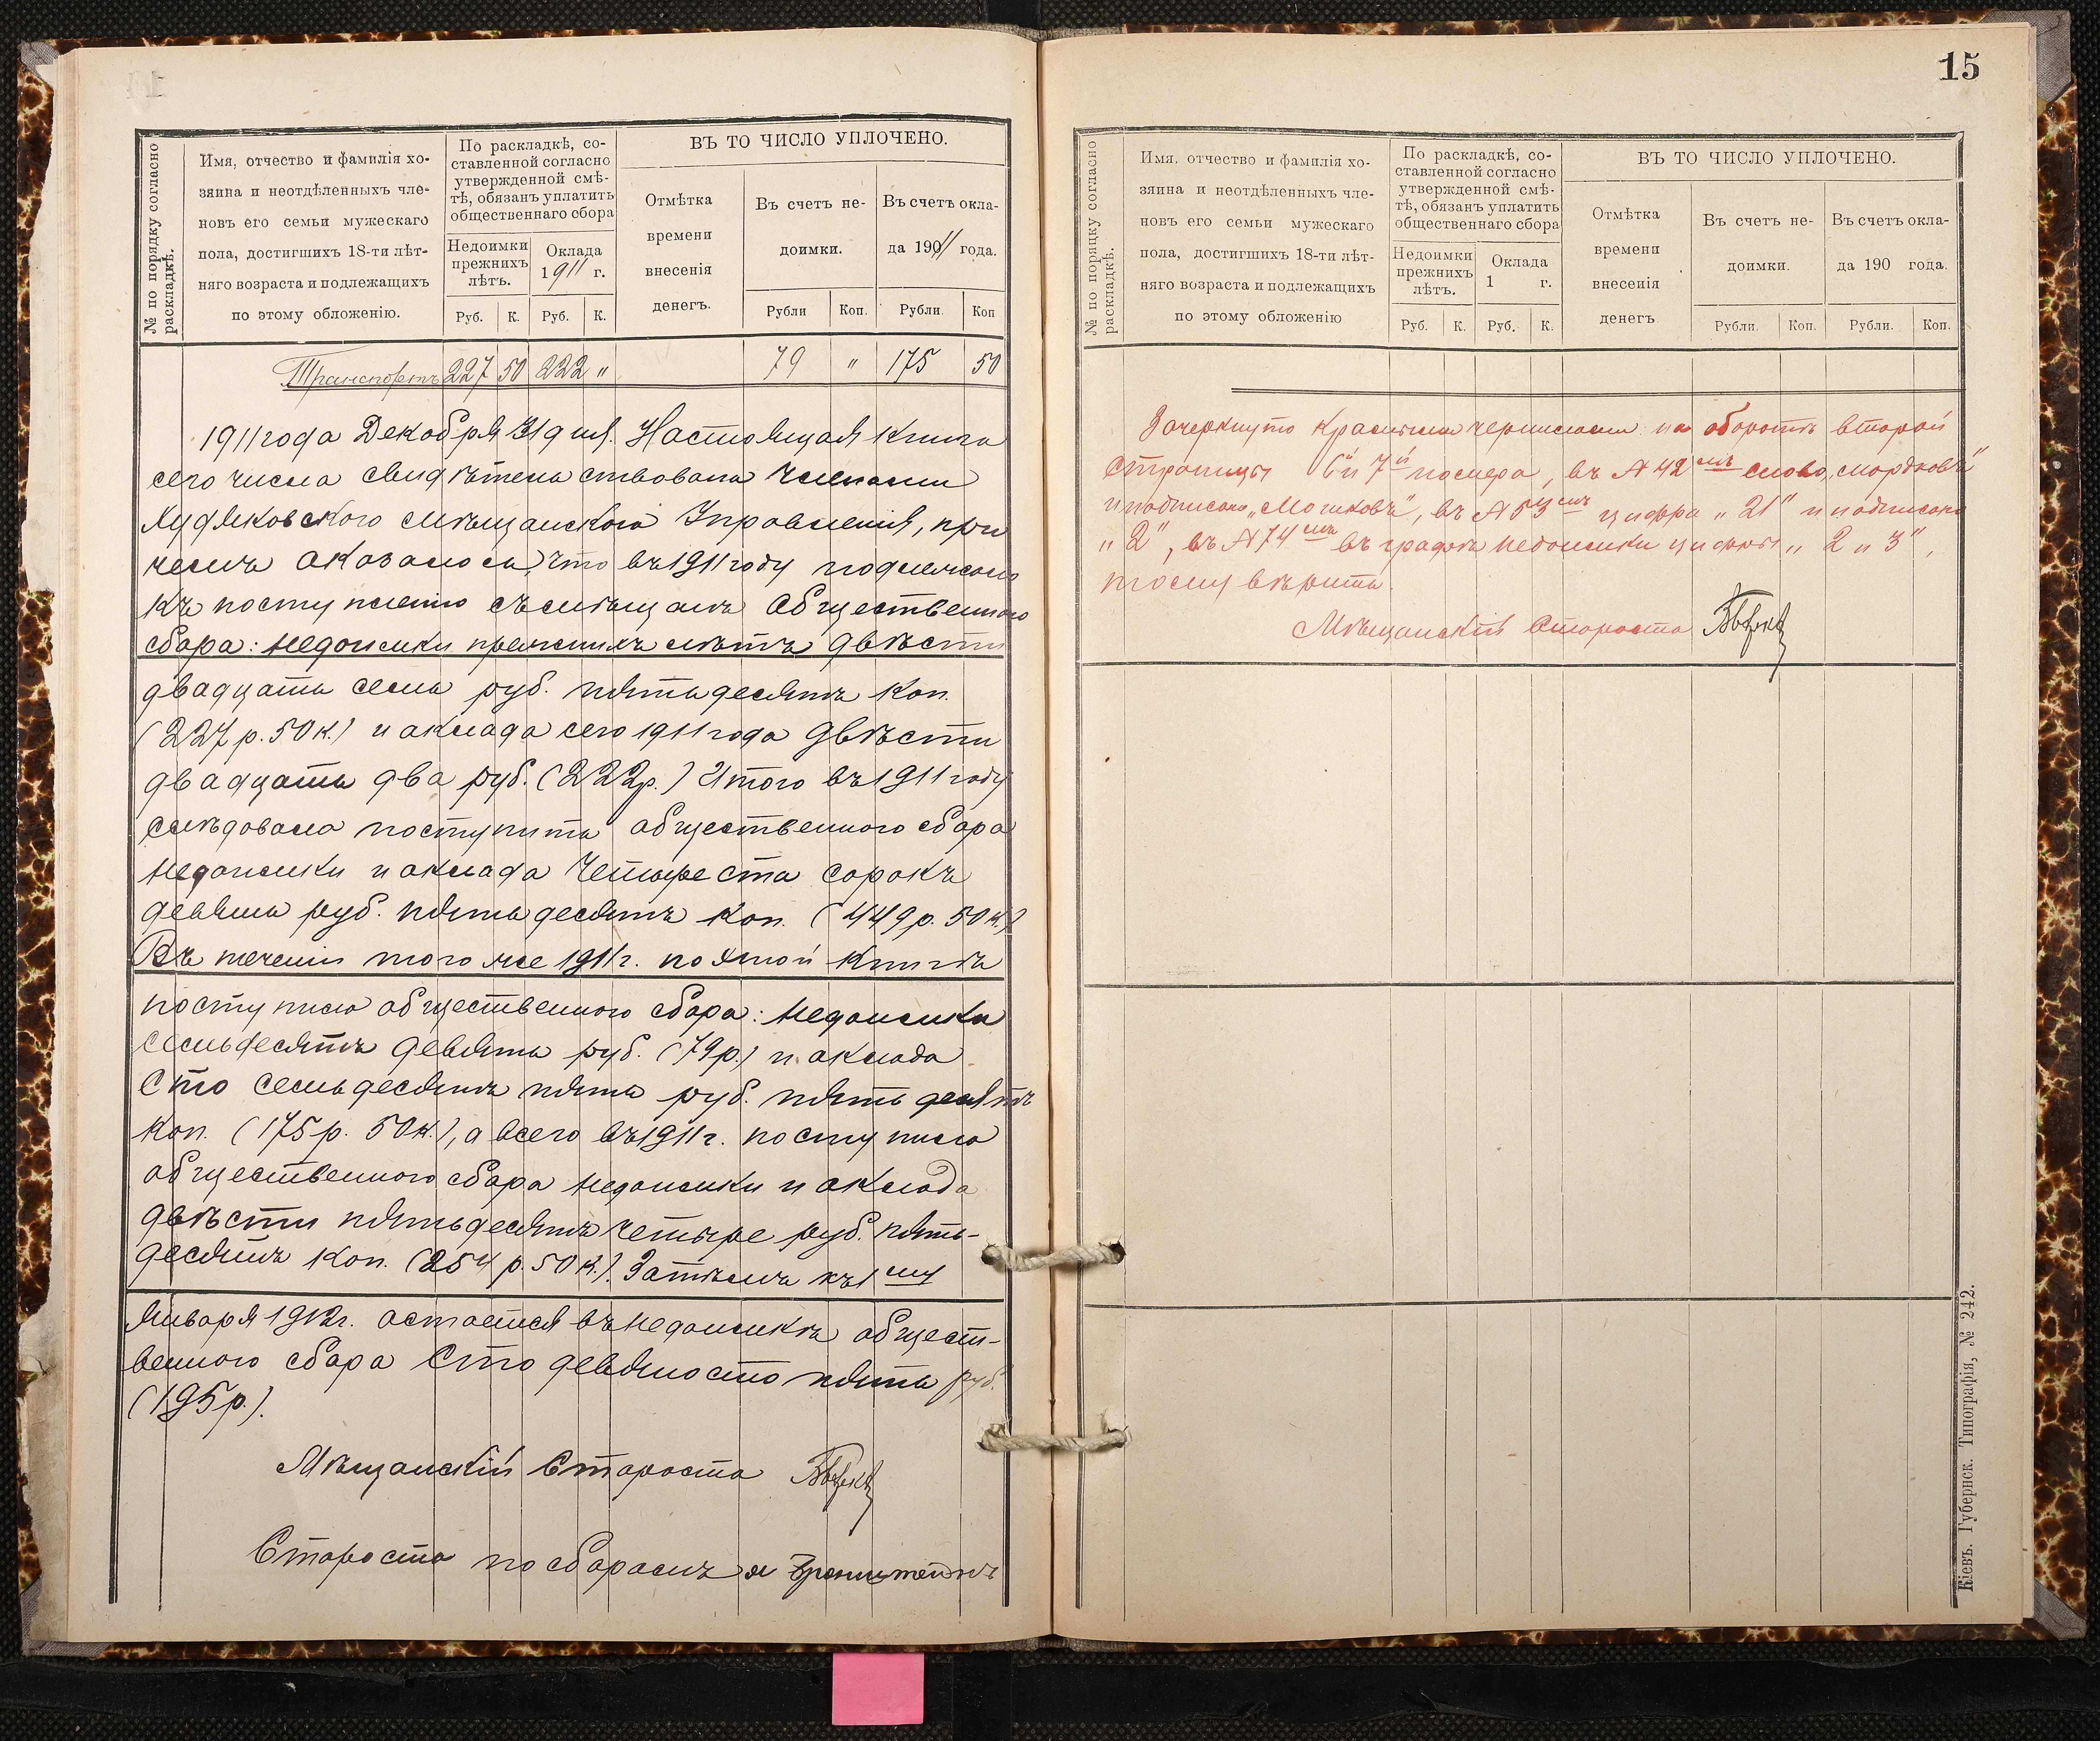 № по порядку согласно раскладкѣ.
Имя, отчество и фамилія хо-
зяина и неотдѣленныхъ чле-
новъ его семьи мужескаго
пола, достигшихъ 18-ти лѣт-
няго возраста и подлежащихъ
по этому обложенію.
По раскладкѣ, со-
ставленной согласно
утвержденной смѣ-
тѣ, обязанъ уплатить
общественнаго сбора
Недоимки
прежнихъ
лѣтъ.
Оклада
1911 г.
Руб. К. Руб. К.
ВЪ ТО ЧИСЛО УПЛОЧЕНО.
Отмѣтка
времени
внесенія
денегъ.
Въ счетъ не-
доимки.
Въ счетъ окла-
да 1911 года.
Рубли Коп. Рубли. Коп
Транспортъ 227 50 222 " 79 " 175 50
1911 года Декабря 31 дня. Настоящая книга
сего числа свидѣтельствована членами
Мѣщанскаго Управленія, при
чемъ оказалось, что въ 1911 году подлежало
къ поступленію съ мѣщанъ общественнаго
сбора: недоимки прежнихъ лѣтъ двѣсти
двадцать семь руб. пятьдесятъ коп.
(227 р. 50 к.) и оклада сего 1911 года двѣсти
двадцать два руб. (222 р.) Итого въ 1911 году
слѣдовало поступить общественного сбора
недоимки и оклада четыреста сорокъ
девять руб. пятьдесятъ коп. (449 р. 50 к.)
Въ теченіи того же 1911 г. по этой книгѣ
поступило общественного сбора: недоимки
семьдесятъ девять руб. (79 р.) и оклада
сто семьдесятъ пять руб. пятьдесятъ
коп. (175 р. 50 к.), а всего въ 1911 г. поступило
общественного сбора недоимки и оклада
двѣсти пятьдесятъ четыре руб. пять-
десятъ коп. (254 р. 50 к.). Затѣмъ къ 1му
Января 1912 г. остается въ недоимкѣ общест-
венного сбора сто девяносто пять руб.
(195 р.).
Мѣщанскій Староста
Староста по сборамъ
15
№ по порядку согласно раскладкѣ.
Имя, отчество и фамилія хо-
зяина и неотдѣленныхъ чле-
новъ его семьи мужескаго
пола, достигшихъ 18-ти лѣт-
няго возраста и подлежащихъ
по этому обложенію
По раскладкѣ, со-
ставленной согласно
утвержденной смѣ-
тѣ, обязанъ уплатить
общественнаго сбора
Недоимки
прежнихъ
лѣтъ.
Оклада
1 г.
Руб. К. Руб. К.
ВЪ ТО ЧИСЛО УПЛОЧЕНО.
Отмѣтка
времени
внесенія
денегъ
Въ счетъ не-
доимки.
Въ счетъ окла-
да 190 года.
Рубли. Коп. Рубли. Коп.
Зачеркнуто красными чернилами на оборотѣ второй
страницы 6й и 7й номера, въ № 42мъ слово „Мордковъ"
и надписано „Мошковъ", въ № 53мъ цифра „21" и надписано
„2", въ № 74мъ въ графѣ недоимки цифры „2 и 3",
тому вѣрить.
Мѣщанскій Староста
Кіевъ. Губернск. Типографія, № 242.